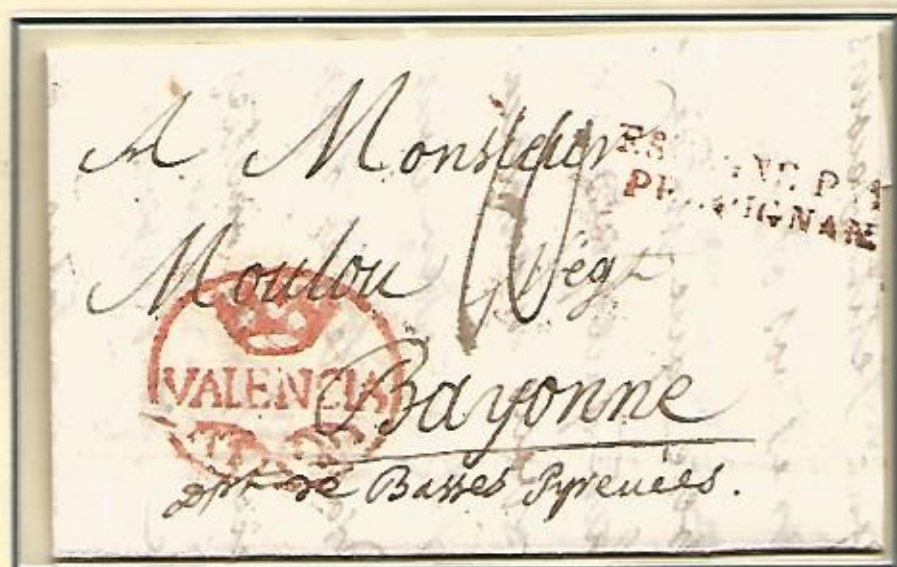 A Monsieur
Moulou Négt
VALENCIA
Bayonne
dpt de Basses Pyrenées.